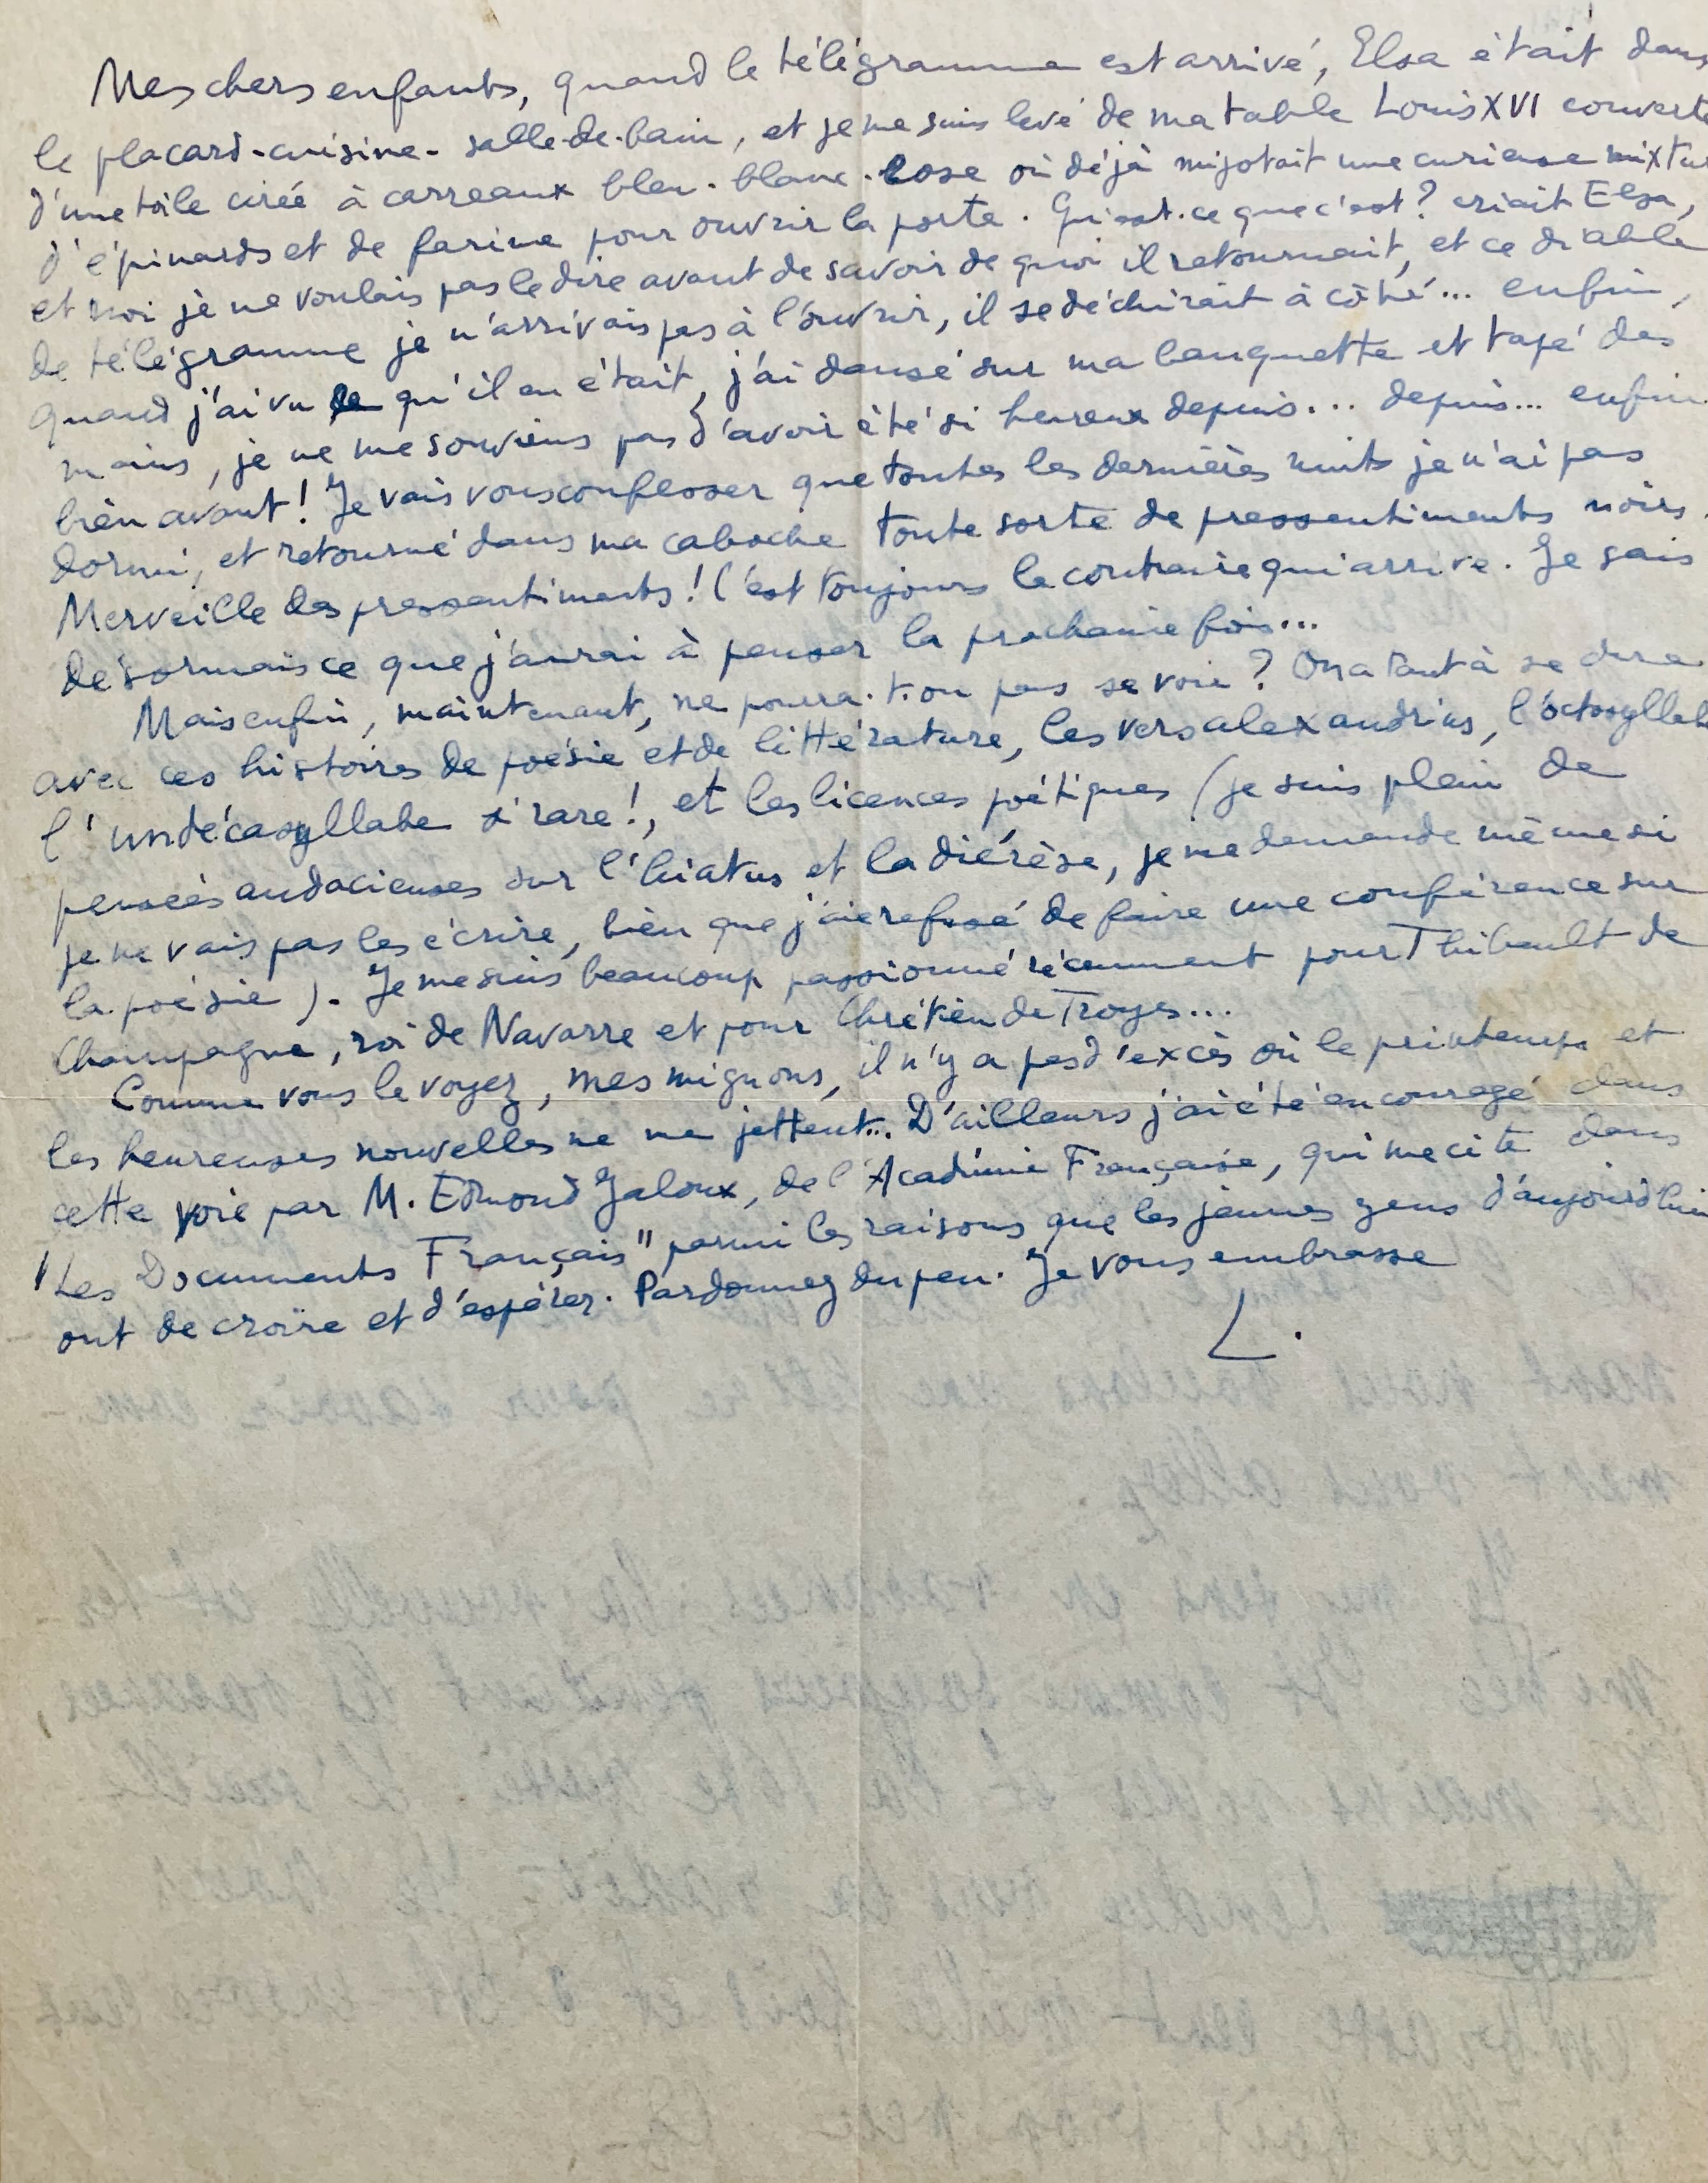 Mes chers enfants, quand le télégramme est arrivé, Elsa était dans
le placard-cuisine-salle-de-bain, et je me suis levé de ma table Louis XVI couverte
d'une toile cirée à carreaux bleu-blanc-rose où déjà mijotait une curieuse mixtur
d'épinards et de farine pour ouvrir la porte. Qu'est-ce que c'est? criait Elsa,
et moi je ne voulais pas le dire avant de savoir de quoi il retournait, et ce diable
de télégramme je n'arrivais pas à l'ouvrir, il se déchirait à côté... enfin,
quand j'ai vu ce qu'il en était, j'ai dansé sur ma banquette et tapé des
mains, je ne me souviens pas d'avoir été si heureux depuis... depuis... enfin
bien avant! Je vais vous confesser que toutes les dernières nuits je n'ai pas
dormi, et retourné dans ma caboche toute sorte de pressentiments noirs.
Merveille des pressentiments! C'est toujours le contraire qui arrive. Je sais
désormais ce que j'aurai à penser la prochaine fois...
Mais enfin, maintenant, ne pourra-t-on pas se voir? On a tant à se dire
avec ces histoires de poésie et de littérature, les vers alexandrins, l'octosyllab
l'undécasyllabe si rare!, et les licences poétiques (je suis plein de
pensées audacieuses sur l'hiatus et la diérèse, je me demande même si
je ne vais pas les écrire, bien que j'aie refusé de faire une conférence sur
la poésie). Je me suis beaucoup passionné récemment pour Thibault de
Champagne, roi de Navarre et pour Chrétien de Troyes...
Comme vous le voyez, mes mignons, il n'y a pas d'excès où le printemps et
les heureuses nouvelles ne me jettent... D'ailleurs j'ai été encouragé dans
cette voie par M. Edmond Jaloux, de l'Académie Française, qui me cite dans
"Les Documents Français" parmi les raisons que les jeunes gens d'aujourd'hui
ont de croire et d'espérer. Pardonnez du peu. Je vous embrasse
L.